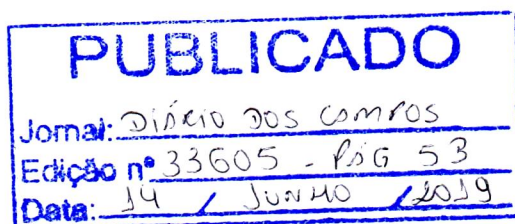 PUBLICADO
Jornal: DIÁRIO DOS CAMPOS
Edição nº 33605 - PÁG 53
Data: 14 / JUNHO / 2019